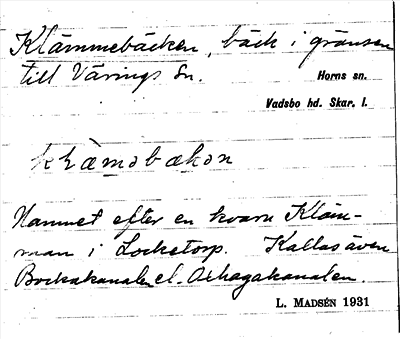 Klämmebäcken, bäck i gränsen
till Värings sn.
Horns sn.
Vadsbo hd. Skar. l.
klæməbækən
Namnet efter en kvarn Kläm-
man i Locketorp. Kallas även
Bockakanalen el. Aekagakanalen.
L. MADSÉN 1931